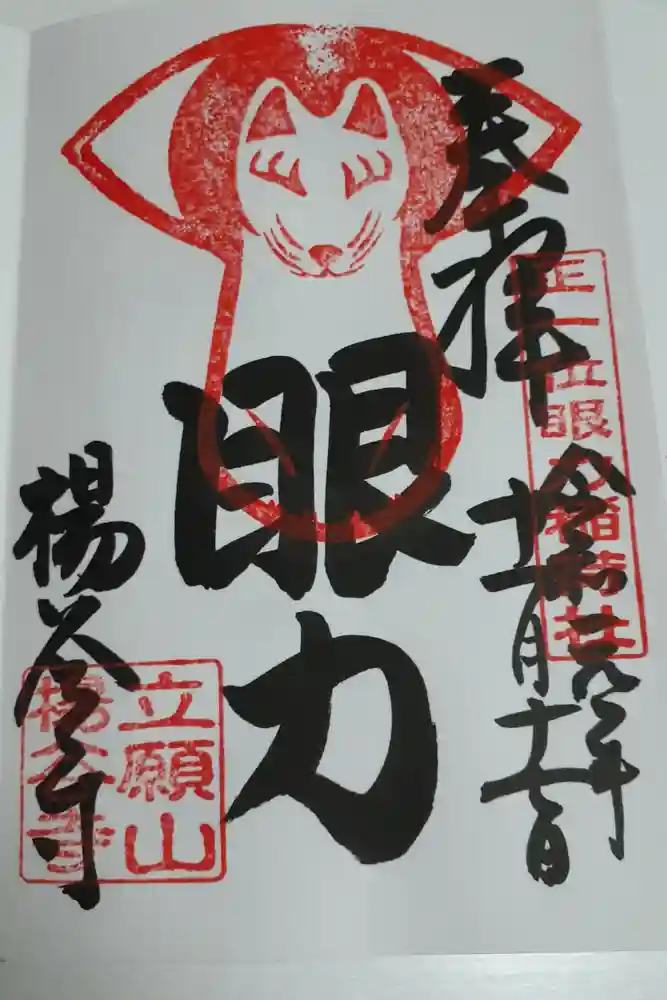 奉拝
正一位眼力稲荷社
令和 年
十一月十七日
眼力
楊谷寺
立願山
楊谷寺